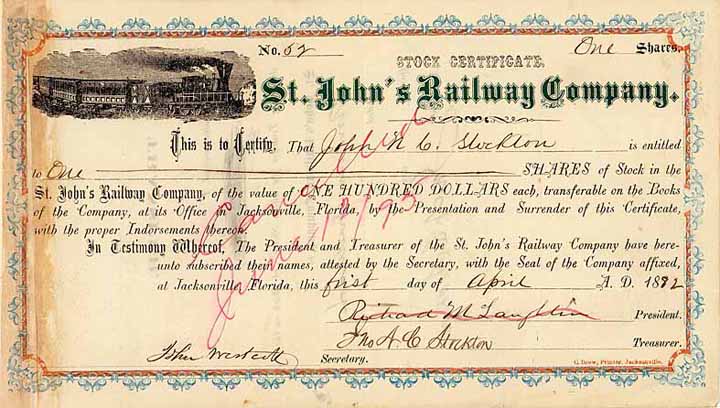 No. 52
One Shares.
STOCK CERTIFICATE.
St. John's Railway Company.
This is to Certify, That John N. C. Stockton is entitled
to One SHARES of Stock in the
St. John's Railway Company, of the value of ONE HUNDRED DOLLARS each, transferable on the Books
of the Company, at its Office in Jacksonville, Florida, by the Presentation and Surrender of this Certificate,
with the proper Indorsements thereon.
In Testimony Whereof, The President and Treasurer of the St. John's Railway Company have here-
unto subscribed their names, attested by the Secretary, with the Seal of the Company affixed,
at Jacksonville, Florida, this first day of April A. D. 1892
Richard McLaughlin President.
Jno. N. C. Stockton Treasurer.
John Westcott Secretary.
C. Drew, Printer, Jacksonville.
Cancelled
June 18/95